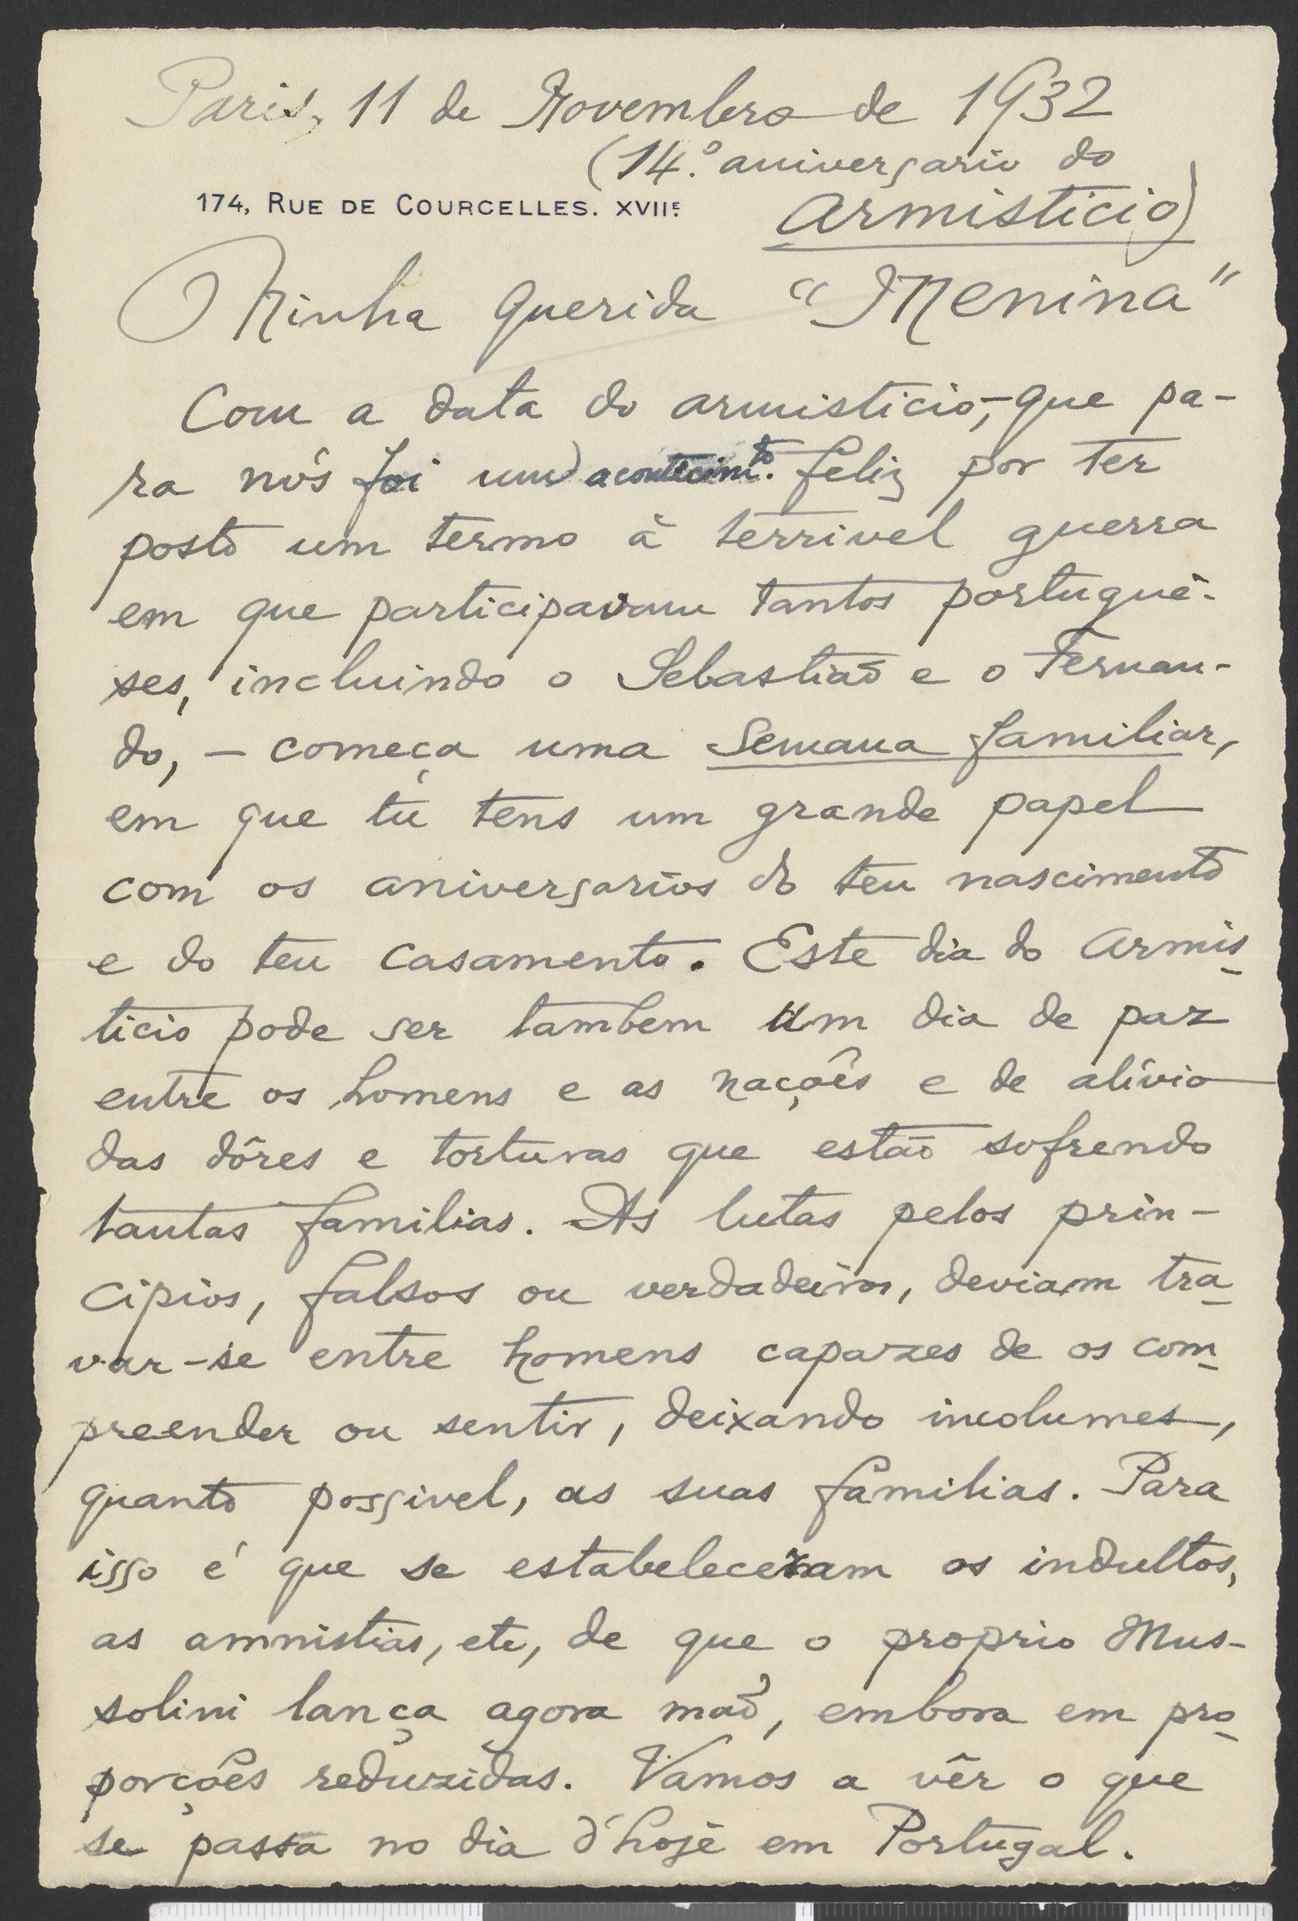 Paris, 11 de Novembro de 1932
(14.º aniversario do
174, RUE DE COURCELLES. XVIIE
Armisticio)
Minha querida "Menina"
Com a data do armisticio, - que pa-
ra nós foi um acontecimto. feliz por ter
posto um termo à terrivel guerra
em que participavam tantos portuguê-
ses, incluindo o Sebastião e o Fernan-
do, - começa uma semana familiar,
em que tu tens um grande papel
com os aniversarios do teu nascimento
e do teu casamento. Este dia do Armis-
ticio pode ser tambem um dia de paz
entre os homens e as nações e de alívio
das dôres e torturas que estão sofrendo
tantas familias. As lutas pelos prin-
cipios, falsos ou verdadeiros, deviam tra-
var-se entre homens capazes de os com-
preender ou sentir, deixando incolumes,
quanto possivel, as suas familias. Para
isso é que se estabeleceram os indultos,
as amnistias, etc, de que o proprio Mus-
solini lança agora mão, embora em pro-
porções reduzidas. Vamos a vêr o que
se passa no dia d'hoje em Portugal.